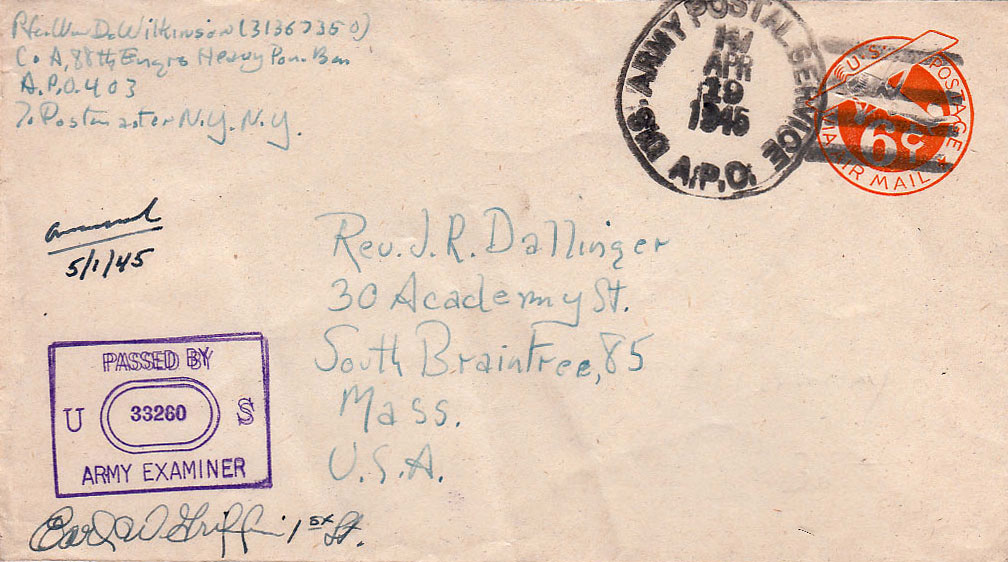 Pfc. Wm D. Wilkinson (31367350)
Co A, 88th Engrs Heavy Pon. Bn
A.P.O. 403
% Postmaster N.Y. N.Y.
U.S. ARMY POSTAL SERVICE
APR
19
1945
A.P.O.
U.S. POSTAGE
6¢
VIA AIR MAIL
5/1/45
Rev. J. R. Dallinger
30 Academy St.
South Braintree, 85
Mass.
U.S.A.
PASSED BY
U 33260 S
ARMY EXAMINER
Earl W Griffin 1st Lt.